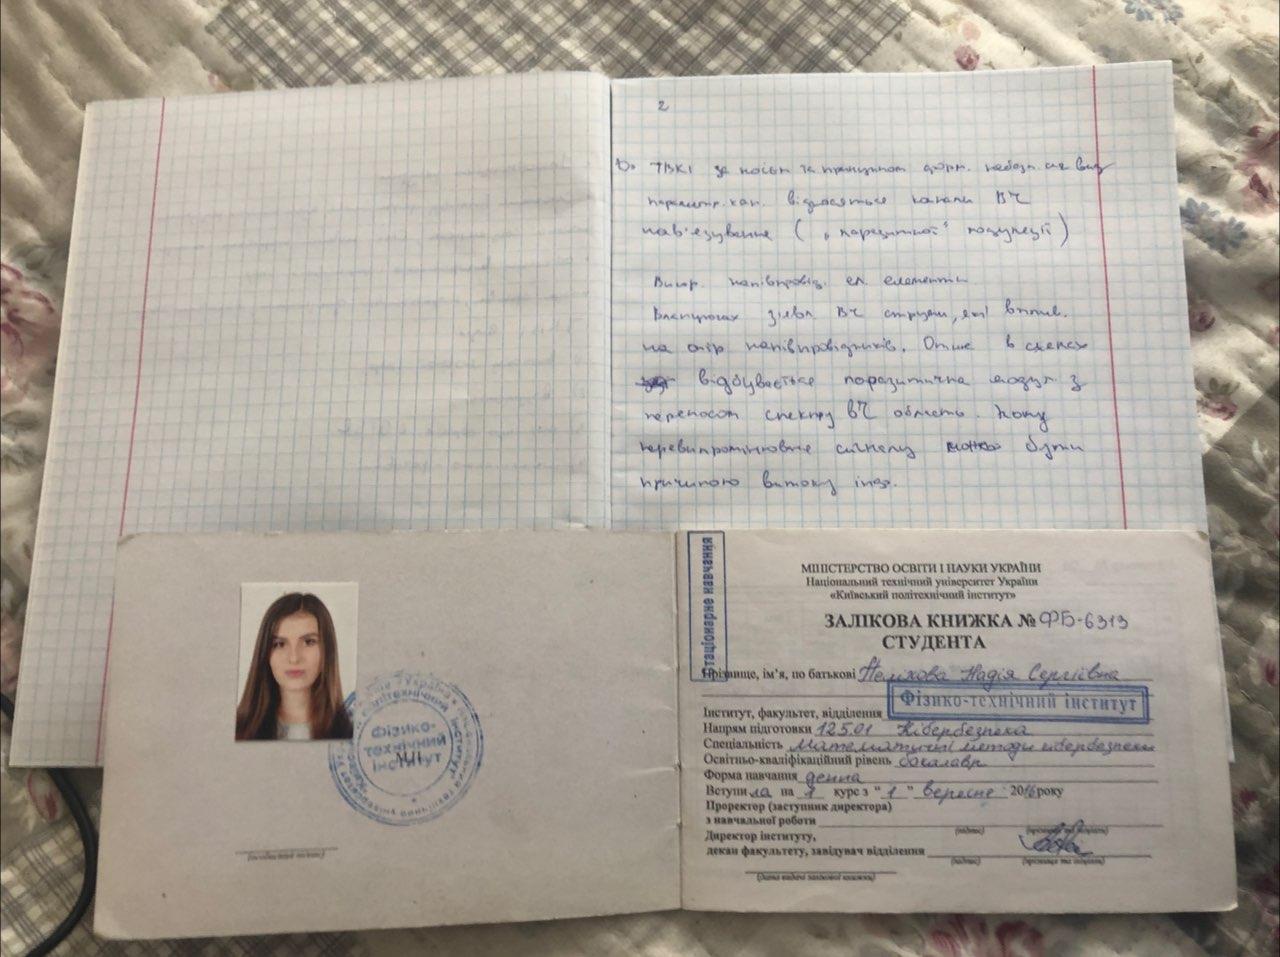 2
ТВКІ за носієм та принципом форм. небезп. сиг
параметр. кан. відносяться канали ВЧ
нав'язування ( „паразитної“ модуляції )
Викор. напівпровід. ел. елементи
ВЧ струми, які вплив.
на опір напівпровідників. Отже в схемах
відбувається паразитична модул. з
переносом спектру ВЧ область. Тому
перевипромінювання сигналу може бути
причиною витоку інф.
Стаціонарне навчання
МІНІСТЕРСТВО ОСВІТИ І НАУКИ УКРАЇНИ
Національний технічний університет України
«Київський політехнічний інститут»
ЗАЛІКОВА КНИЖКА № ФБ-6313
СТУДЕНТА
Прізвище, ім'я, по батькові Надія Сергіївна
Інститут, факультет, відділення Фізико-технічний інститут
Напрям підготовки 125.01 Кібербезпека
Спеціальність Математичні методи кібербезпеки
Освітньо-кваліфікаційний рівень бакалавр
Форма навчання денна
Вступила на 1 курс з "1" вересня 2016 року
Проректор (заступник директора)
з навчальної роботи
(підпис) (прізвище та ініціали)
Директор інституту,
декан факультету, завідувач відділення
(підпис) (прізвище та ініціали)
(дата видачі залікової книжки)
Фізико-
технічний
інститут
МП
(особистий підпис)